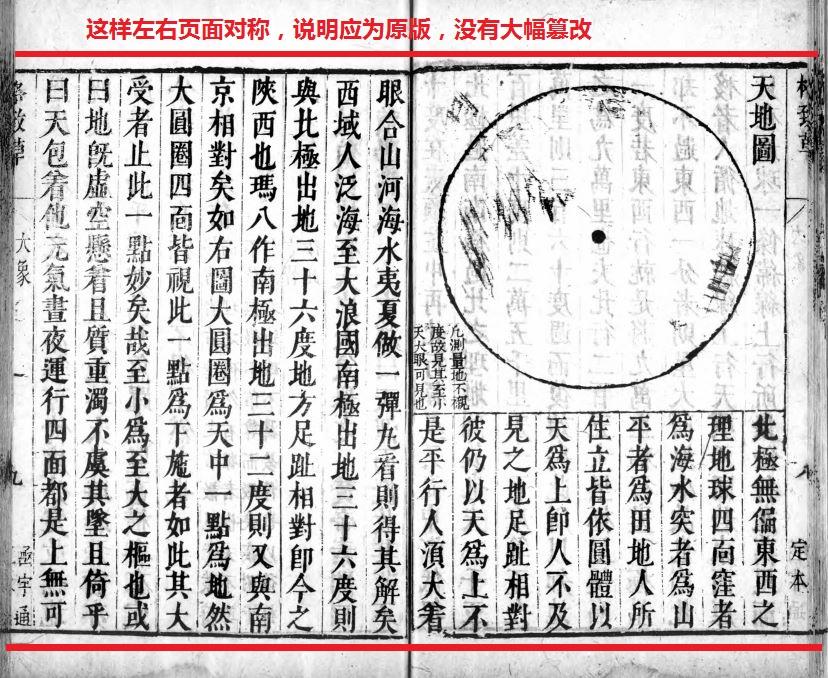 这样左右页面对称，说明应为原版，没有大幅篡改
格致草
八
定本
天地圖
北極無偏東西之
理地球四面窪者
爲海水突者爲山
平者爲田地人所
住立皆依圓體以
天爲上卽人不及
見之地足趾相對
彼仍以天爲上不
是平行人頂大着
凡測量地不
度故見其至小
天大眼可見也
眼合山河海水夷夏做一彈丸看則得其解矣
西域人泛海至大浪國南極出地三十六度則
與北極出地三十六度地方足趾相對卽今之
陝西也瑪八作南極出地三十二度則又與南
京相對矣如右圖大圓圈爲天中一點爲地然
大圓圈四面皆視此一點爲下施者如此其大
受者止此一點妙矣哉至小爲至大之樞也或
曰地旣虛空懸着且質重濁不虞其墜且倚乎
曰天包着他元氣晝夜運行四面都是上無可
格致草
大象
九
函宇通